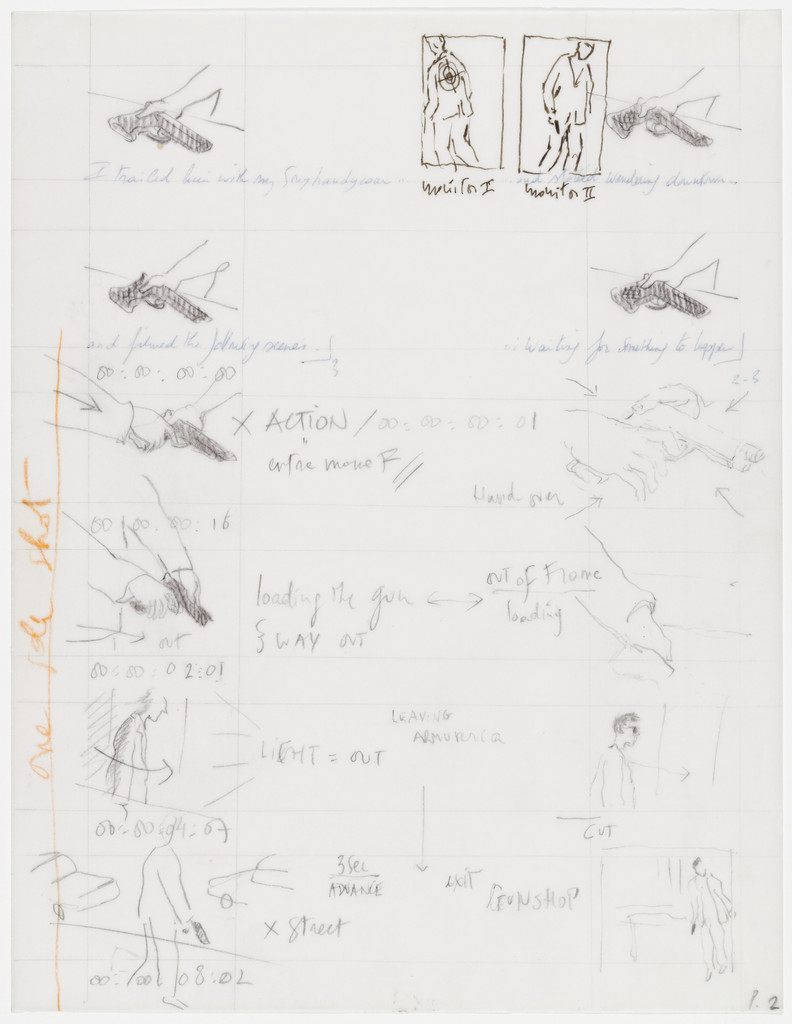 monitor I
monitor II
I trailed him with my Sony handycam...
...and wandering downtown...
and filmed the following scenes.
3
... waiting for something to happen
2-3
00:00:00:00
X ACTION / 00:00:00:01
Hand over
00:00:00:16
loading the gun ↔ out of Frame
loading
WAY OUT
out
00:00:02:01
one shot
LEAVING
LIGHT = OUT
00:00:04:07
CUT
3 Sec
ADVANCE
EXIT
GUNSHOP
X Street
00:00:08:02
P. 2